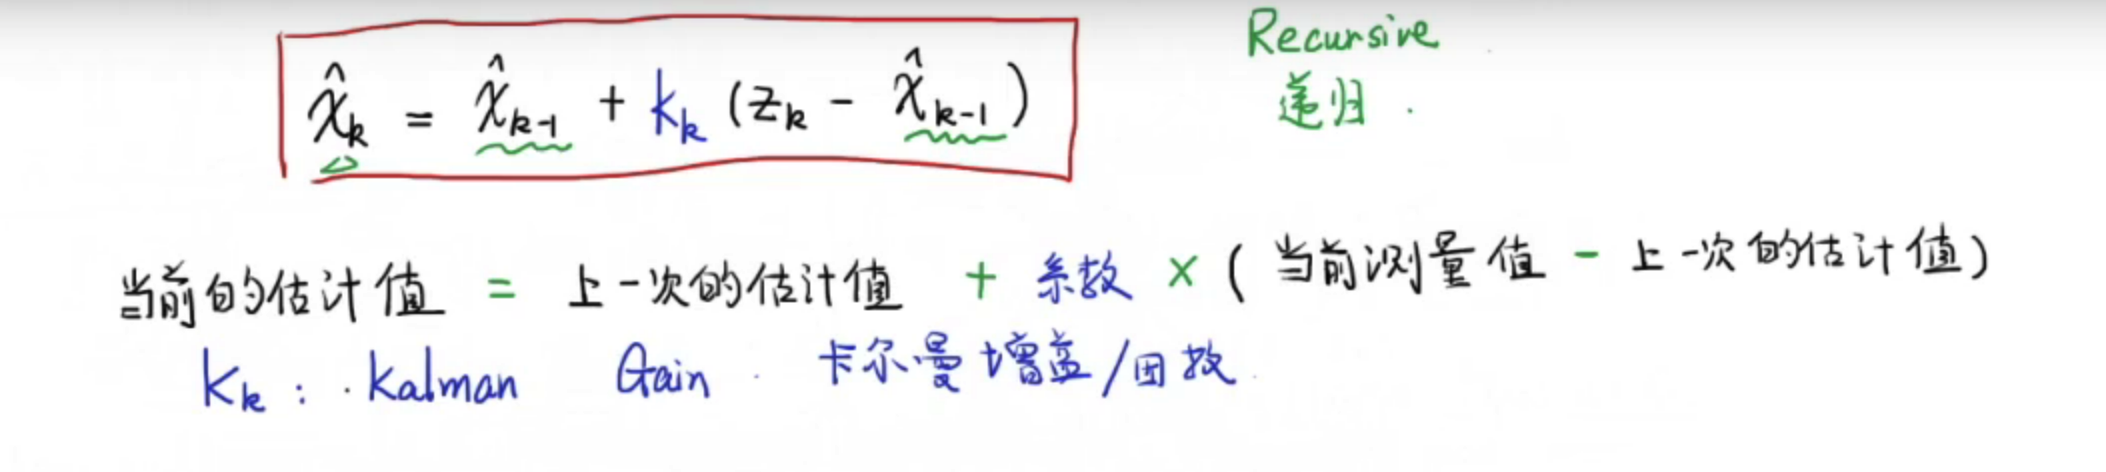 x̂ₖ = x̂ₖ₋₁ + kₖ (zₖ - x̂ₖ₋₁)
Recursive
递归.
当前的估计值 = 上一次的估计值 + 系数 × (当前测量值 - 上一次的估计值)
Kₖ: Kalman Gain 卡尔曼增益/因数